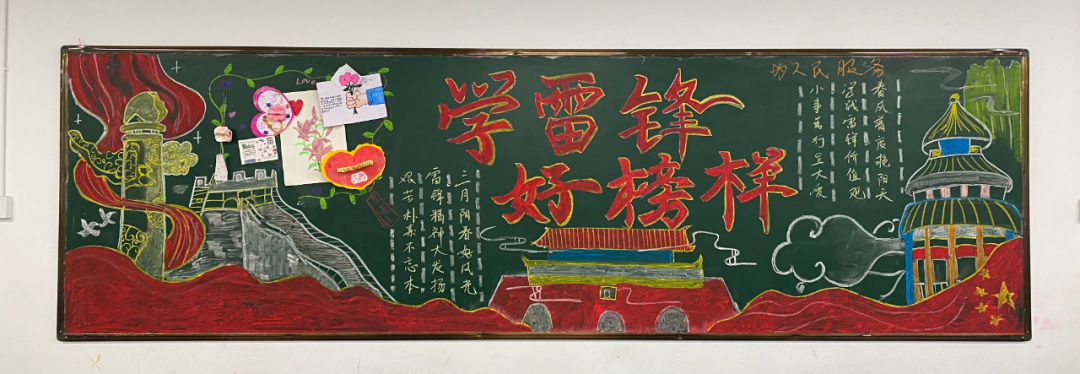 学雷锋
好榜样
为人民服务
春风首度艳阳天
学践雷锋价值观
小事笃行显大爱
三月阳春好风光
雷锋精神大发扬
艰苦朴素不忘本
Love